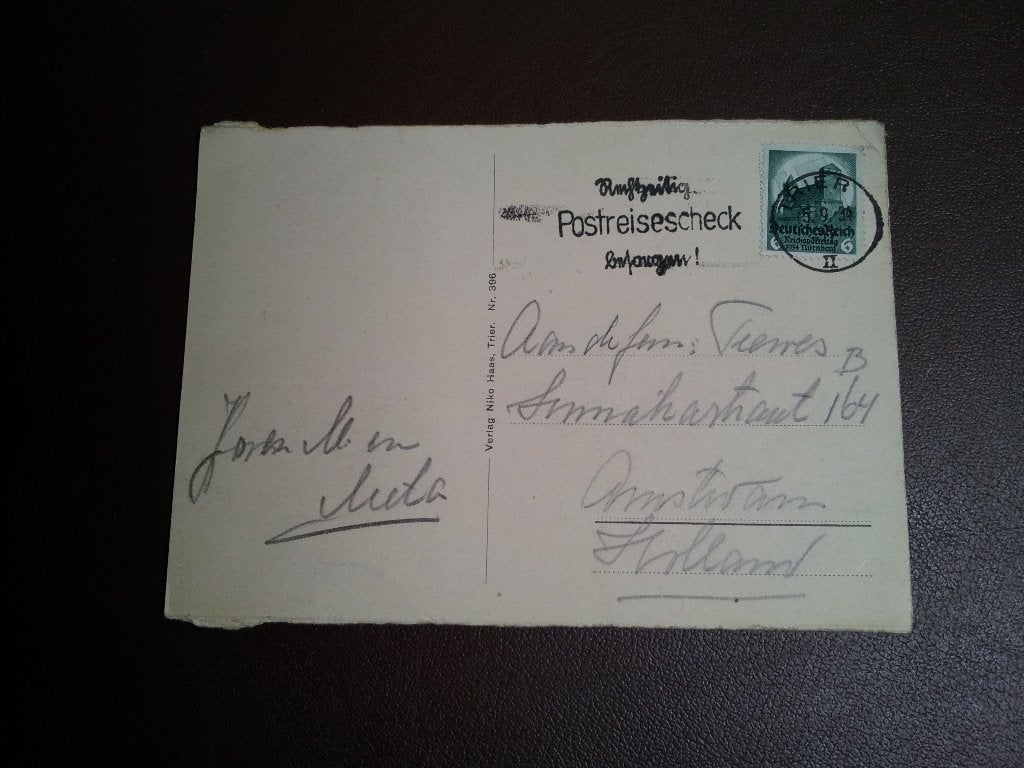 Rechtzeitig
Postreisescheck
besorgen!
TRIER
5.9.34
II
Deutsches Reich
Reichsparteitag
1934 Nürnberg
6 6
Verlag Niko Haas, Trier. Nr. 396
Aan de fam:
164
B
Holland
Meta